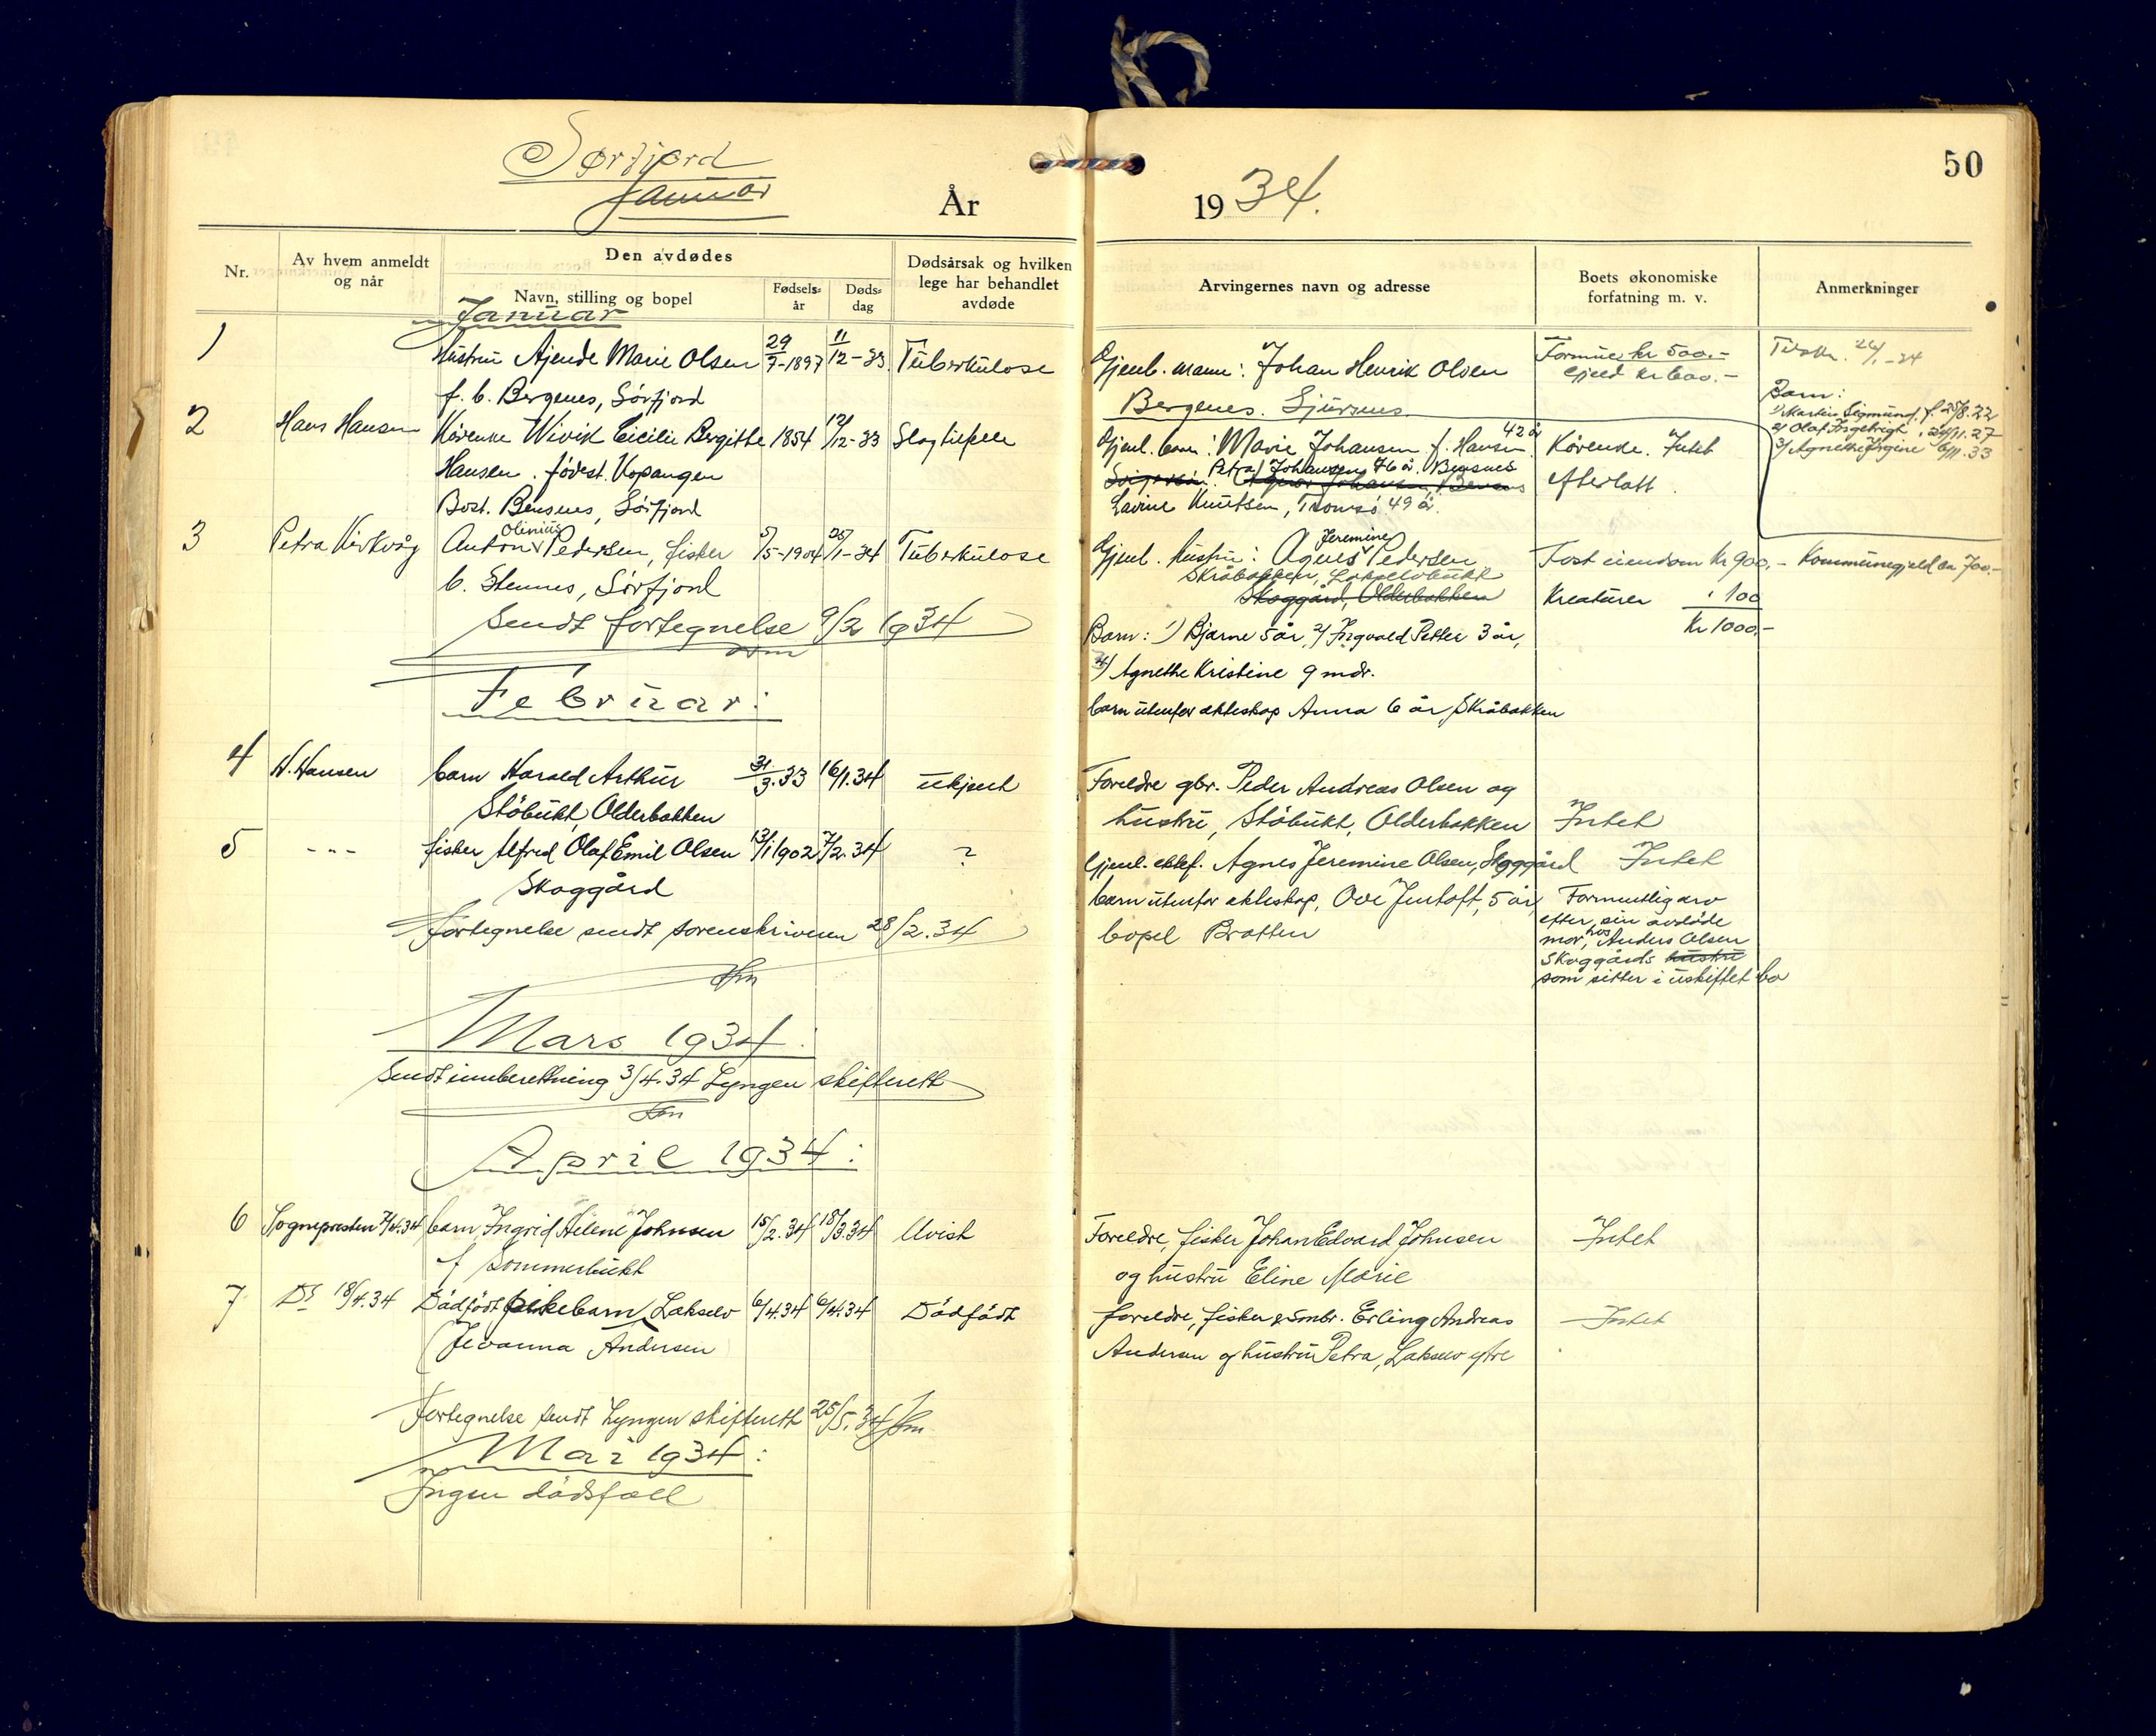 Sørfjord
Januar
År
1934.
50
Nr.
Av hvem anmeldt og når
Den avdødes
Navn, stilling og bopel
Fødsels-år
Døds-dag
Dødsårsak og hvilken lege har behandlet avdøde
Arvingernes navn og adresse
Boets økonomiske forfatning m. v.
Anmerkninger
Januar
1 Hustru Ajende Marie Olsen 29/7-1897 11/12-33. Tuberkulose
f. b. Bergenes, Sørfjord
Gjenl. mann: Johan Henrik Olsen
Bergenes. Sjursnes
Formue kr 500.-
Gjeld kr 600.-
24/1-34
Barn:
1) Martin Sigmund, f. 25/8.22
2) Olaf Ingebrigt, 24/11.27
3) Agnethe Jrgine 6/11.33
2 Hans Hansen Kårenke Wivik Cicilie Bergitte 1854 12/12-33 Slagtilfelle
Hansen. fødest. Kopangen
Bost. Bensnes, Sørfjord
Gjenl. barn: Marie Johansen f. Hansen 42 år
Petra Johansen 76 år. Bensnes
Lavine Knutsen, Tromsø 49 år.
Kårenke. Intet
efterlatt
3 Petra Kirkvåg Anton Olinius Pedersen, fisker 5/5-1904 25/1-34 Tuberkulose
b. Stennes, Sørfjord
Sendt fortegnelse 9/2 1934
Gjenl. hustru: Agnes Jeremine Pedersen
Skråbakken, Lakselvbukt
Skoggård, Olderbakken
Barn: 1) Bjarne 5 år, 2) Ingvald Petter 3 år,
3) Agnethe Kristine 9 mdr.
barn utenfor ekteskap Anna 6 år Skråbakken
Fast eiendom kr 900.- Kommunegjeld kr 700.-
Kreaturer " 100
Kr 1000.-
Februar:
4 H. Hansen barn Harald Arthur 31/3.33 16/1.34 ukjent
Stöbukt, Olderbakken
Foreldre gbr. Peder Andreas Olsen og
hustru, Stöbukt, Olderbakken Intet
5 - " - fisker Alfred Olaf Emil Olsen 13/1 1902 7/2.34 ?
Skoggård
Gjenl. ektef. Agnes Jeremine Olsen, Skoggård Intet
barn utenfor ekteskap, Ove Jentoft, 5 år,
bopel Bratten
Formentlig arv
efter sin avdöde
mor, hos Anders Olsen
Skoggårds hustru
som sitter i uskiftet bo
Fortegnelse sendt sorenskriveren 28/2.34
Hm
Mars 1934.
Sendt innberettning 3/4.34 Lyngen skifterett
Hm
April 1934:
6 Sognepresten 7/4.34 barn Ingrid Helene Johnsen 15/2.34 18/3.34 Uvist
f Sommerbukt
Foreldre, fisker Johan Edvard Johnsen
og hustru Eline Marie
Intet
7 Ds 18/4.34 Dödfödt pikebarn, Lakselv 6/4.34 6/4.34 Dödfödt
(Jevanna Andersen
foreldre, fisker & småbr. Erling Andreas
Andersen og hustru Petra, Lakselv ytre
Intet
Fortegnelse sendt Lyngen skifterett 25/5.34 Hm
Mai 1934:
Ingen dödsfall